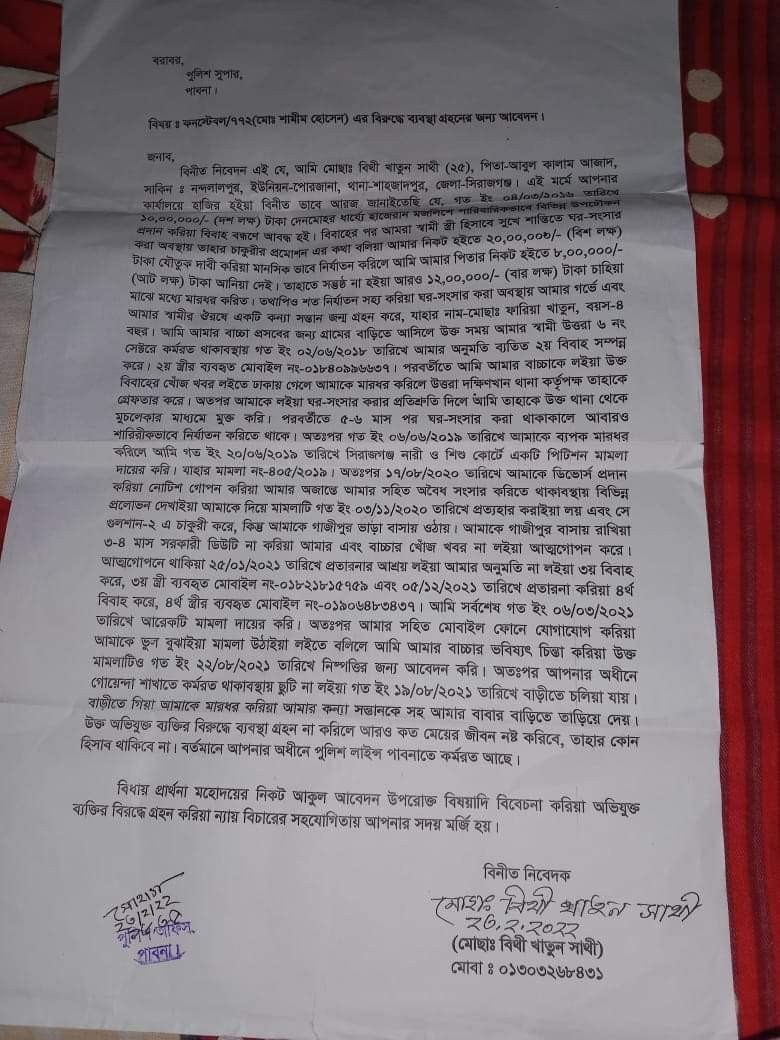 বরাবর,
পুলিশ সুপার,
পাবনা।
বিষয় ঃ কনস্টেবল/৭৭২(মোঃ শামীম হোসেন) এর বিরুদ্ধে ব্যবস্থা গ্রহনের জন্য আবেদন।
জনাব,
বিনীত নিবেদন এই যে, আমি মোছাঃ বিথী খাতুন সাথী (২৫), পিতা-আবুল কালাম আজাদ,
সাকিন ঃ নন্দলালপুর, ইউনিয়ন-পোরজানা, থানা-শাহজাদপুর, জেলা-সিরাজগঞ্জ। এই মর্মে আপনার
কার্যালয়ে হাজির হইয়া বিনীত ভাবে আরজ জানাইতেছি যে, গত ইং ০৪/০৩/২০১৬ তারিখে
১০,০০,০০০/- (দশ লক্ষ) টাকা দেনমোহর ধার্য্যে হাজেরান মজলিসে পারিবারিকভাবে বিভিন্ন উপঢৌকন
প্রদান করিয়া বিবাহ বন্ধনে আবদ্ধ হই। বিবাহের পর আমরা স্বামী স্ত্রী হিসাবে সুখে শান্তিতে ঘর-সংসার
করা অবস্থায় তাহার চাকুরীর প্রমোশন এর কথা বলিয়া আমার নিকট হইতে ২০,০০,০০৮/- (বিশ লক্ষ)
টাকা যৌতুক দাবী করিয়া মানসিক ভাবে নির্যাতন করিলে আমি আমার পিতার নিকট হইতে ৮,০০,০০০/-
(আট লক্ষ) টাকা আনিয়া দেই। তাহাতে সন্তুষ্ট না হইয়া আরও ১২,০০,০০০/- (বার লক্ষ) টাকা চাহিয়া
মাঝে মধ্যে মারধর করিত। তথাপিও শত নির্যাতন সহ্য করিয়া ঘর-সংসার করা অবস্থায় আমার গর্ভে এবং
আমার স্বামীর ঔরষে একটি কন্যা সন্তান জন্ম গ্রহন করে, যাহার নাম-মোছাঃ ফারিয়া খাতুন, বয়স-৪
বছর। আমি আমার বাচ্চা প্রসবের জন্য গ্রামের বাড়িতে আসিলে উক্ত সময় আমার স্বামী উত্তরা ৬ নং
সেক্টরে কর্মরত থাকাবস্থায় গত ইং ০২/০৬/২০১৮ তারিখে আমার অনুমতি ব্যতিত ২য় বিবাহ সম্পন্ন
করে। ২য় স্ত্রীর ব্যবহৃত মোবাইল নং-০১৮৪০৯৯৬৬৩৭। পরবর্তীতে আমি আমার বাচ্চাকে লইয়া উক্ত
বিবাহের খোঁজ খবর লইতে ঢাকায় গেলে আমাকে মারধর করিলে উত্তরা দক্ষিণখান থানা কর্তৃপক্ষ তাহাকে
গ্রেফতার করে। অতপর আমাকে লইয়া ঘর-সংসার করার প্রতিশ্রুতি দিলে আমি তাহাকে উক্ত থানা থেকে
মুচলেকার মাধ্যমে মুক্ত করি। পরবর্তীতে ৫-৬ মাস পর ঘর-সংসার করা থাকাকালে আবারও
শারিরীকভাবে নির্যাতন করিতে থাকে। অতঃপর গত ইং ০৬/০৬/২০১৯ তারিখে আমাকে ব্যপক মারধর
করিলে আমি গত ইং ২০/০৬/২০১৯ তারিখে সিরাজগঞ্জ নারী ও শিশু কোর্টে একটি পিটিশন মামলা
দায়ের করি। যাহার মামলা নং-৪০৫/২০১৯। অতঃপর ১৭/০৮/২০২০ তারিখে আমাকে ডিভোর্স প্রদান
করিয়া নোটিশ গোপন করিয়া আমার অজান্তে আমার সহিত অবৈধ সংসার করিতে থাকাবস্থায় বিভিন্ন
প্রলোভন দেখাইয়া আমাকে দিয়ে মামলাটি গত ইং ০৩/১১/২০২০ তারিখে প্রত্যাহার করাইয়া লয় এবং সে
গুলশান-২ এ চাকুরী করে, কিন্তু আমাকে গাজীপুর ভাড়া বাসায় ওঠায়। আমাকে গাজীপুর বাসায় রাখিয়া
৩-৪ মাস সরকারী ডিউটি না করিয়া আমার এবং বাচ্চার খোঁজ খবর না লইয়া আত্মগোপন করে।
আত্মগোপনে থাকিয়া ২৫/০১/২০২১ তারিখে প্রতারনার আশ্রয় লইয়া আমার অনুমতি না লইয়া ৩য় বিবাহ
করে, ৩য় স্ত্রী ব্যবহৃত মোবাইল নং-০১৮২১৮১৫৭৫৯ এবং ০৫/১২/২০২১ তারিখে প্রতারনা করিয়া ৪র্থ
বিবাহ করে, ৪র্থ স্ত্রীর ব্যবহৃত মোবাইল নং-০১৯০৬৪৮৩৪৩৭। আমি সর্বশেষ গত ইং ০৬/০৩/২০২১
তারিখে আরেকটি মামলা দায়ের করি। অতঃপর আমার সহিত মোবাইল ফোনে যোগাযোগ করিয়া
আমাকে ভুল বুঝাইয়া মামলা উঠাইয়া লইতে বলিলে আমি আমার বাচ্চার ভবিষ্যৎ চিন্তা করিয়া উক্ত
মামলাটিও গত ইং ২২/০৮/২০২১ তারিখে নিষ্পত্তির জন্য আবেদন করি। অতঃপর আপনার অধীনে
গোয়েন্দা শাখাতে কর্মরত থাকাবস্থায় ছুটি না লইয়া গত ইং ১৯/০৮/২০২১ তারিখে বাড়ীতে চলিয়া যায়।
বাড়ীতে গিয়া আমাকে মারধর করিয়া আমার কন্যা সন্তানকে সহ আমার বাবার বাড়িতে তাড়িয়ে দেয়।
উক্ত অভিযুক্ত ব্যক্তির বিরুদ্ধে ব্যবস্থা গ্রহন না করিলে আরও কত মেয়ের জীবন নষ্ট করিবে, তাহার কোন
হিসাব থাকিবে না। বর্তমানে আপনার অধীনে পুলিশ লাইন্স পাবনাতে কর্মরত আছে।
বিধায় প্রার্থনা মহোদয়ের নিকট আকুল আবেদন উপরোক্ত বিষয়াদি বিবেচনা করিয়া অভিযুক্ত
ব্যক্তির বিরুদ্ধে গ্রহন করিয়া ন্যায় বিচারের সহযোগিতায় আপনার সদয় মর্জি হয়।
বিনীত নিবেদক
মোছাঃ বিথী খাতুন সাথী
২৩.২.২০২২
(মোছাঃ বিথী খাতুন সাথী)
মোবা ঃ ০১৩০৩২৬৮৪৩১
২৩/২/২২
পুলিশ অফিস,
পাবনা।